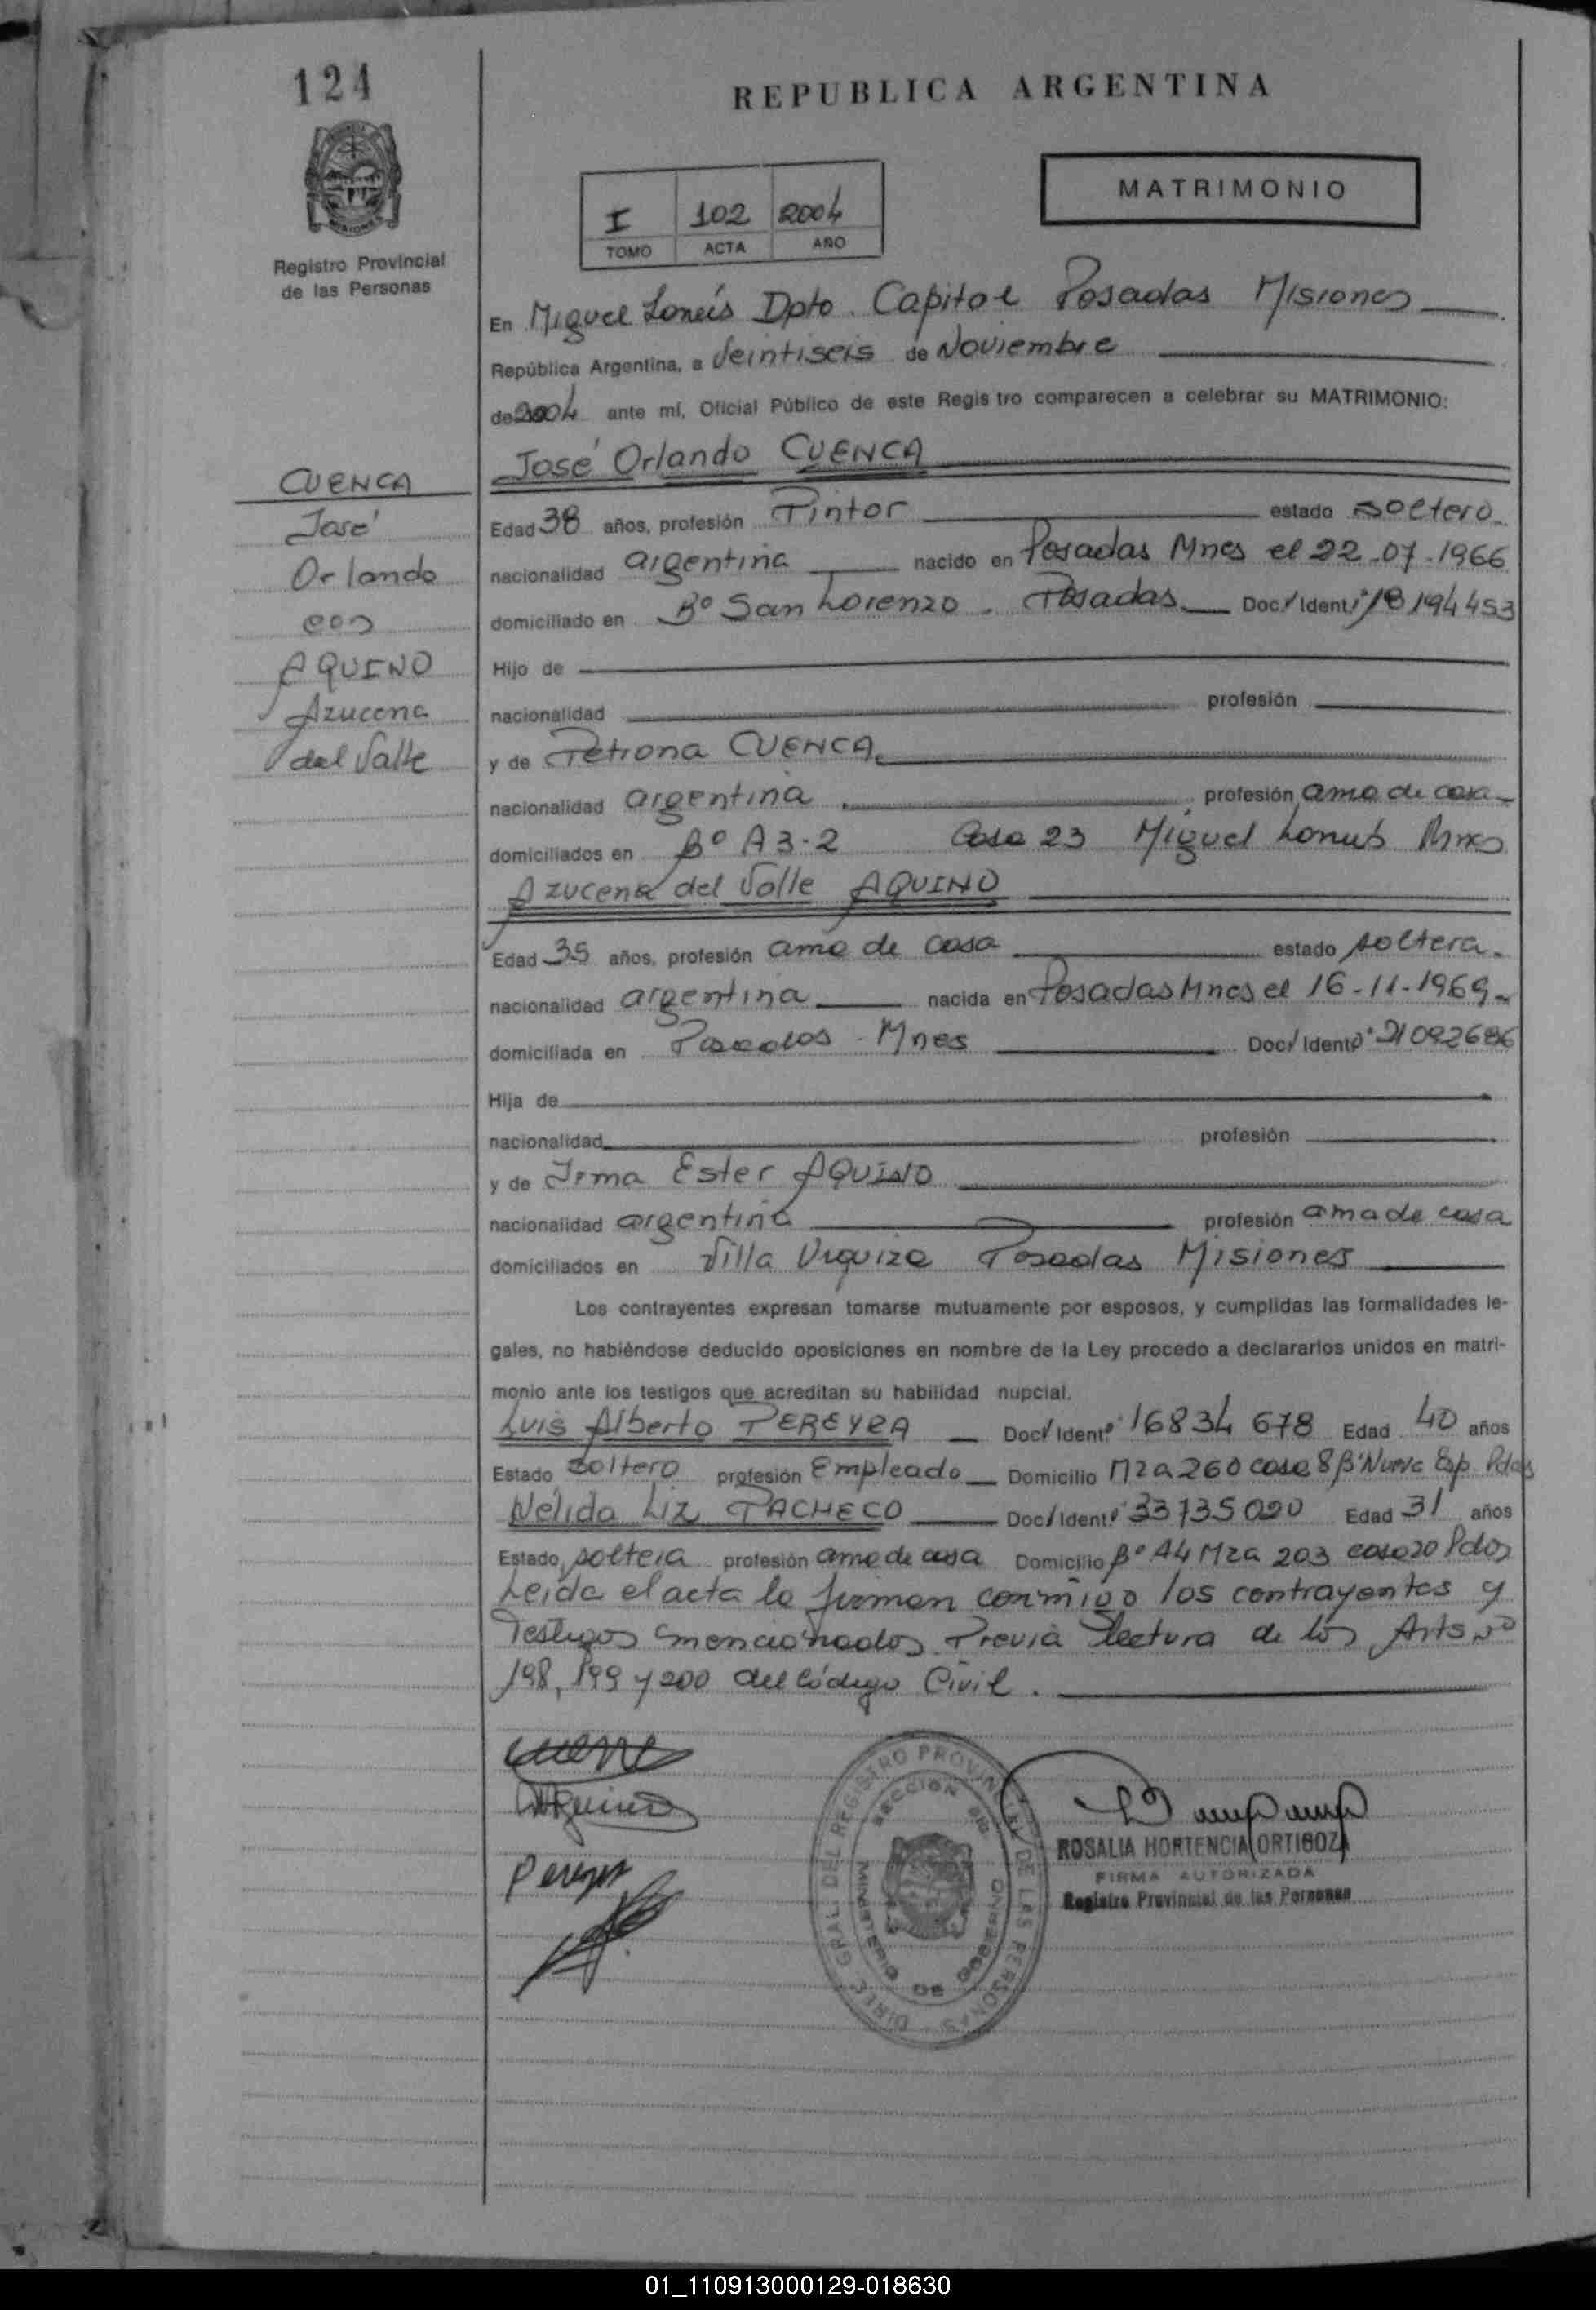 124
REPUBLICA ARGENTINA
MATRIMONIO
I 102 2004
TOMO ACTA AÑO
Registro Provincial
de las Personas
En Miguel Lanús Dpto. Capital Posadas Misiones
República Argentina, a Veintiseis de Noviembre
de 2004 ante mí, Oficial Público de este Regis tro comparecen a celebrar su MATRIMONIO:
José Orlando CUENCA
CUENCA
José
Orlando
con
AQUINO
Azucena
del Valle
Edad 38 años, profesión Pintor estado soltero
nacionalidad argentina nacido en Posadas Mnes el 22-07-1966
domiciliado en Bº San Lorenzo. Posadas Doc/Ident. 18194453
Hijo de
nacionalidad profesión
y de Petrona CUENCA
nacionalidad argentina profesión ama de casa
domiciliados en Bº A3-2 Casa 23 Miguel Lanus Mnes
Azucena del Valle AQUINO
Edad 35 años, profesión ama de casa estado soltera.
nacionalidad argentina nacida en Posadas Mnes el 16-11-1969
domiciliada en Posadas - Mnes Doc/Ident
Hija de
nacionalidad profesión
y de Irma Ester AQUINO
nacionalidad argentina profesión ama de casa
domiciliados en Villa Urquiza Posadas Misiones
Los contrayentes expresan tomarse mutuamente por esposos, y cumplidas las formalidades le-
gales, no habiéndose deducido oposiciones en nombre de la Ley procedo a declararlos unidos en matri-
monio ante los testigos que acreditan su habilidad nupcial.
Luis Alberto PEREYRA Doc/Ident. 16834678 Edad 40 años
Estado soltero profesión Empleado Domicilio Mza 260 casa 8 Bº Nueva Esp. Pdas
Nélida Liz PACHECO Doc/Ident. 33735020 Edad 31 años
Estado soltera profesión ama de casa Domicilio Bº A4 Mza 203 casa 20 Pdas
Leída el acta la firman conmigo los contrayentes y
Testigos mencionados. Previa lectura de los Arts Nº
198, 199 y 200 del Código Civil.
Pereyra
DIREC. GRAL. DEL REGISTRO PROVINCIAL DE LAS PERSONAS
MINISTERIO DE GOBIERNO
ROSALIA HORTENCIA ORTIGOZA
FIRMA AUTORIZADA
Registro Provincial de las Personas
01_110913000129-018630